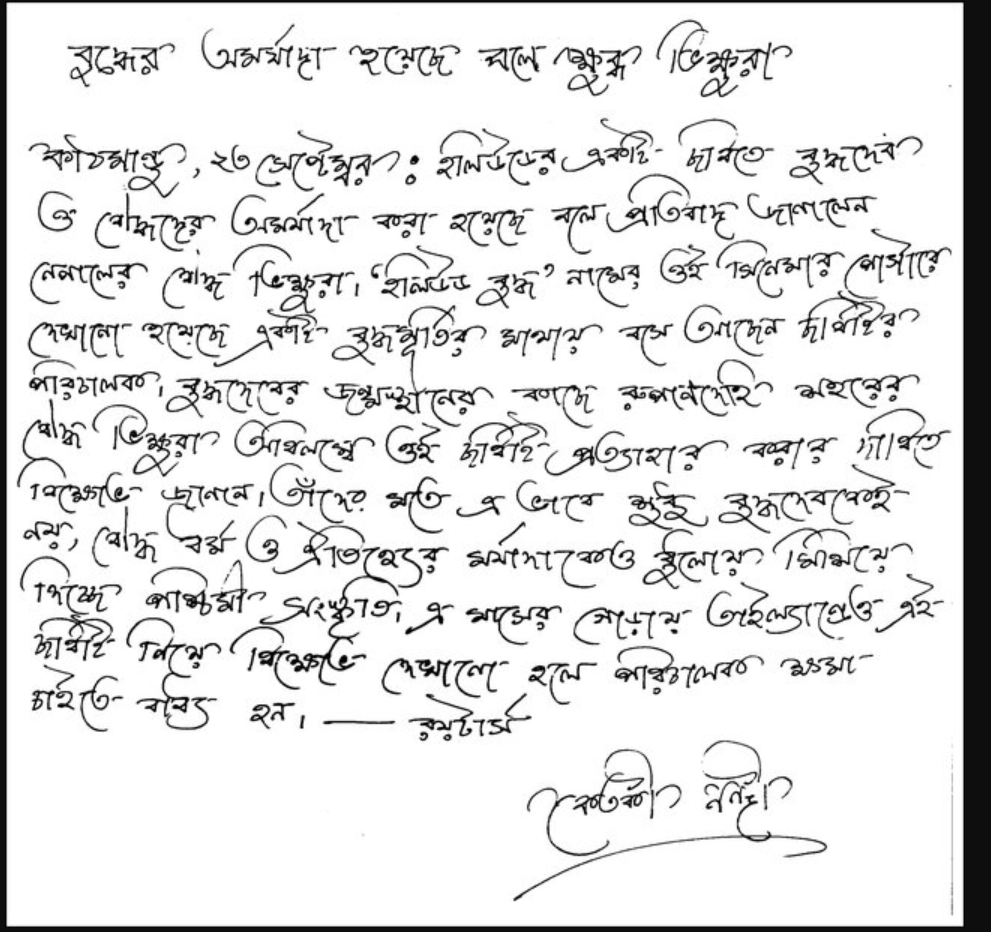 বুদ্ধের অমর্যাদা হয়েছে বলে ক্ষুব্ধ ভিক্ষুরা
কাঠমাণ্ডু, ২৩ সেপ্টেম্বর : হলিউডের একটি ছবিতে বুদ্ধদেব
ও বৌদ্ধদের অমর্যাদা করা হয়েছে বলে প্রতিবাদ জানালেন
নেপালের বৌদ্ধ ভিক্ষুরা। 'হলিউড বুদ্ধ' নামের ওই সিনেমার পোস্টারে
দেখানো হয়েছে একটি বুদ্ধমূর্তির মাথায় বসে আছেন ছবিটির
পরিচালক। বুদ্ধদেবের জন্মস্থানের কাছে রুপনদেহি শহরের
বৌদ্ধ ভিক্ষুরা অবিলম্বে ওই ছবিটি প্রত্যাহার করার দাবিতে
বিক্ষোভ জানান। তাঁদের মতে এ ভাবে শুধু বুদ্ধদেবকেই
নয়, বৌদ্ধ ধর্ম ও ঐতিহ্যের মর্যাদাকেও ধুলোয় মিশিয়ে
দিচ্ছে পশ্চিমী সংস্কৃতি। এ মাসের গোড়ায় তাইল্যাণ্ডেও এই
ছবিটি নিয়ে বিক্ষোভ দেখানো হলে পরিচালক ক্ষমা
চাইতে বাধ্য হন। — রয়টার্স
কেতকী নন্দী